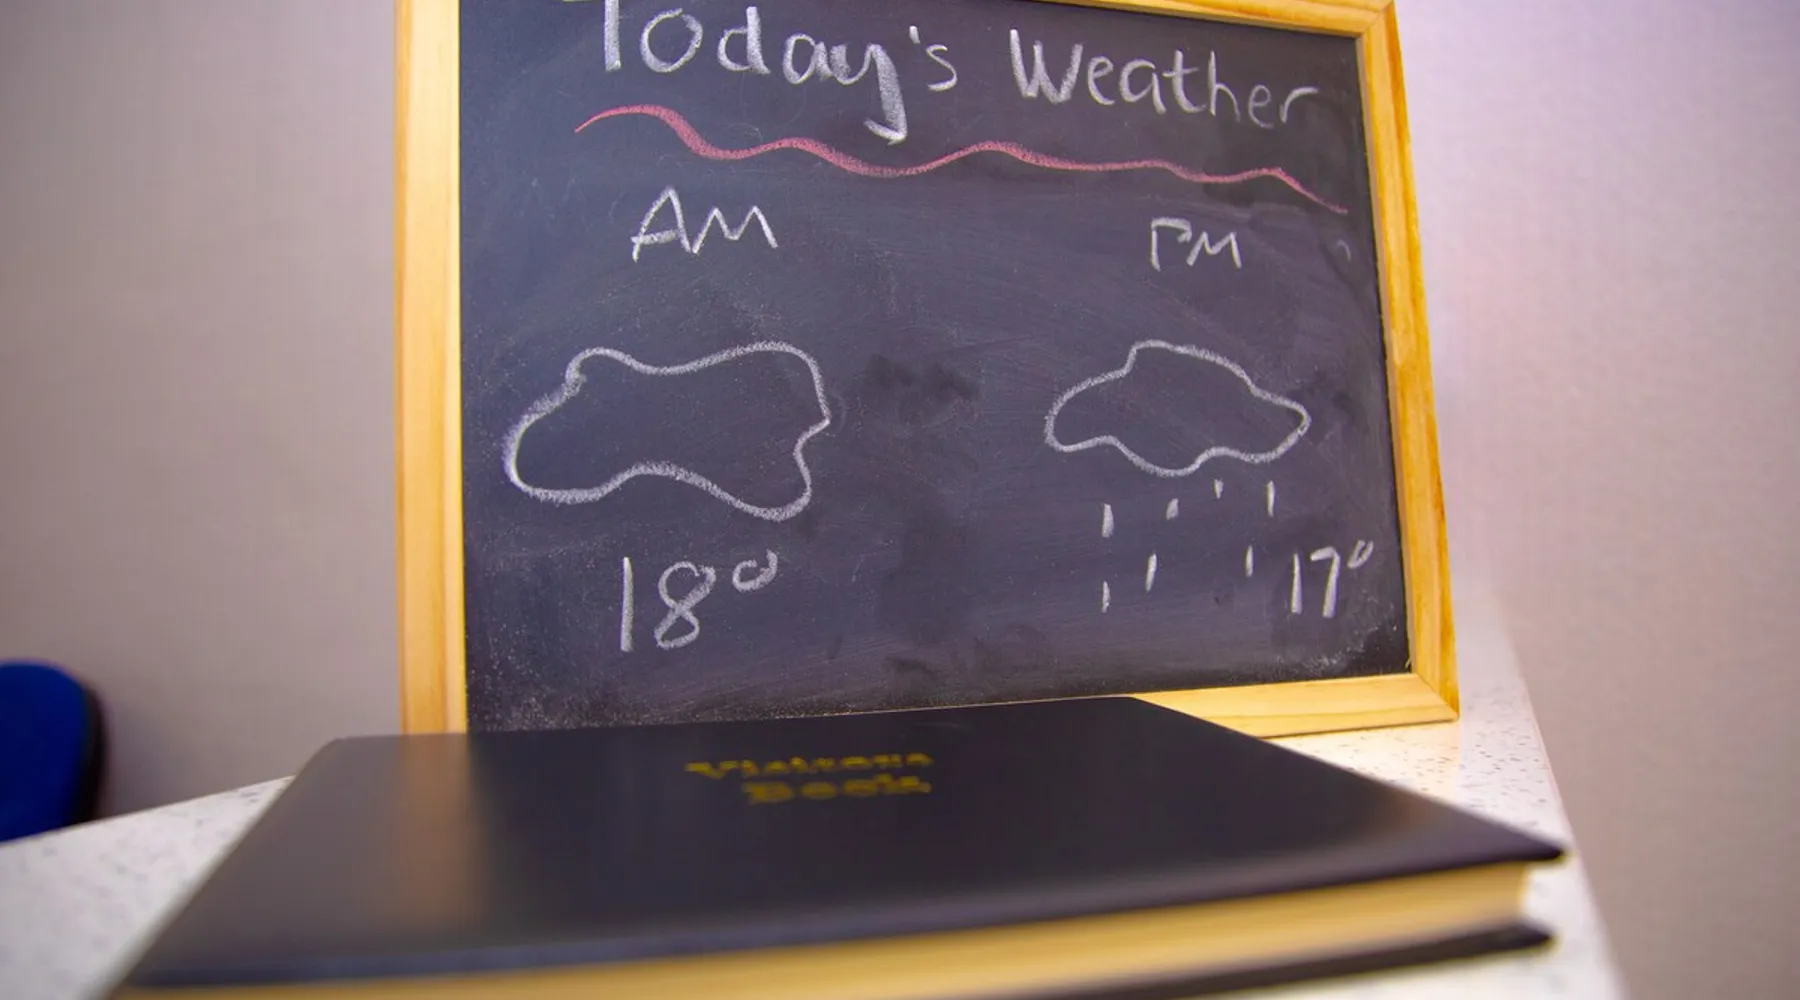 Today's Weather
AM PM
18° 17°
Visitors
Book